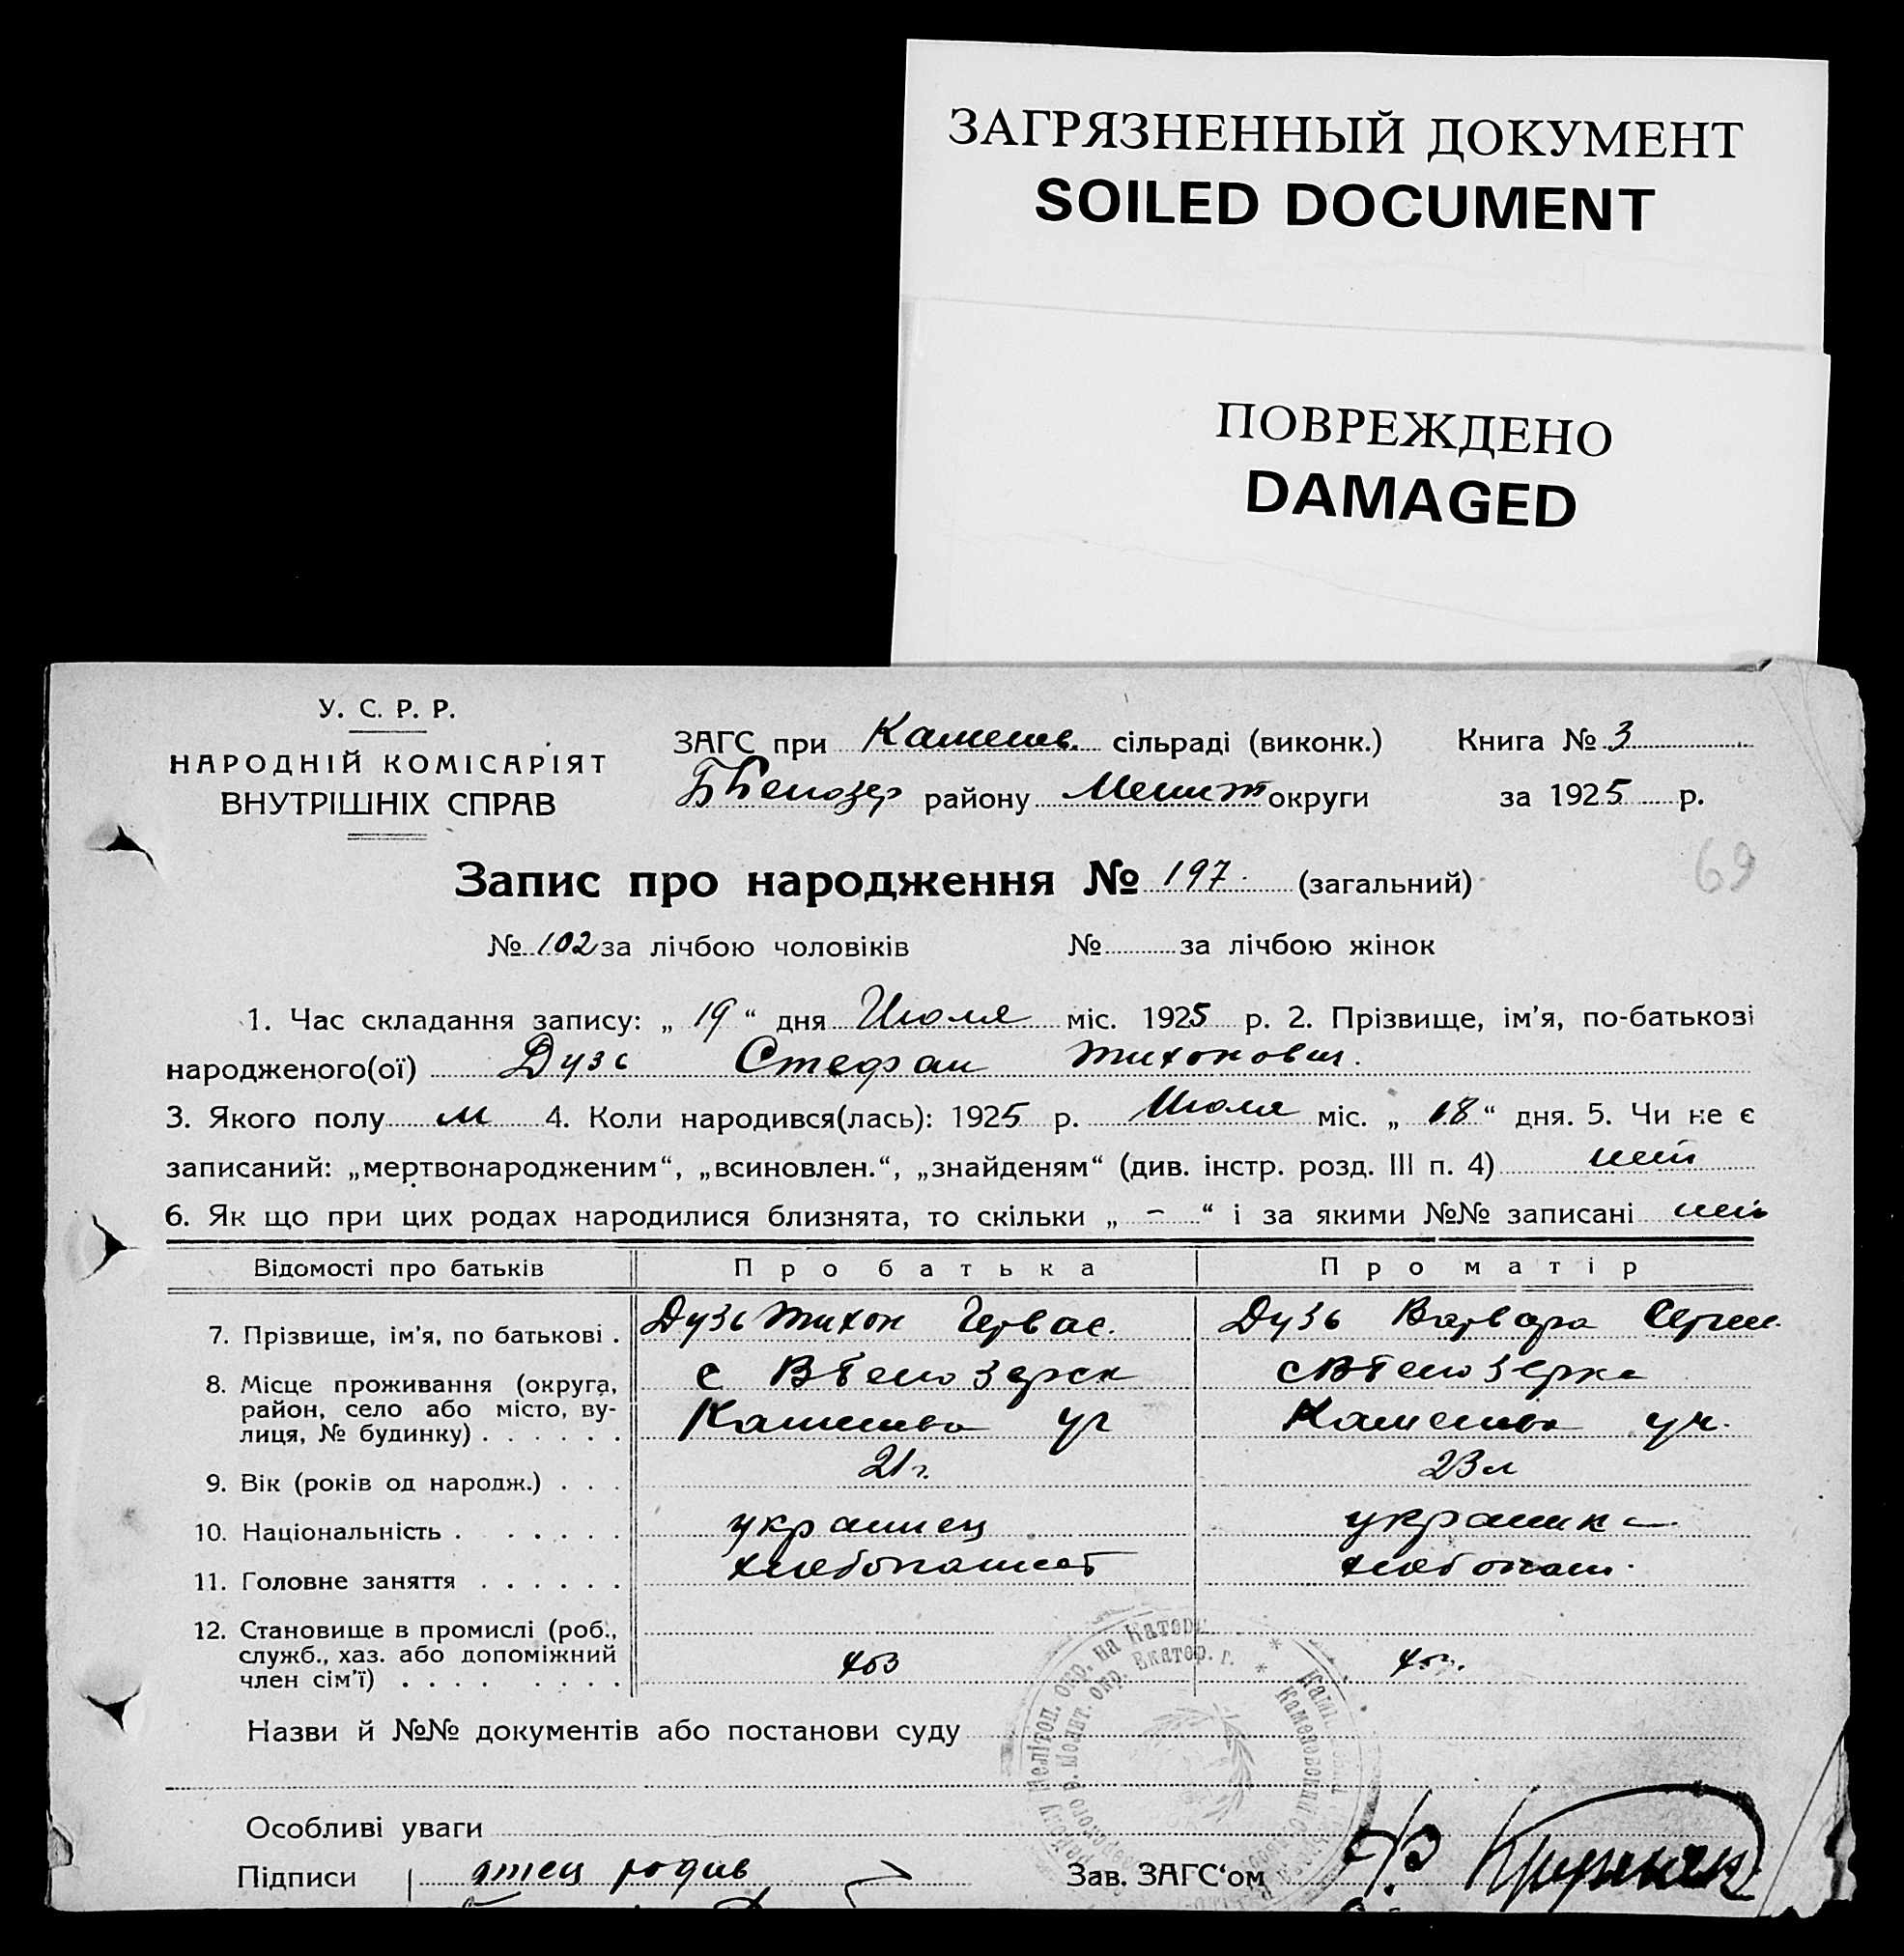 ЗАГРЯЗНЕННЫЙ ДОКУМЕНТ
SOILED DOCUMENT
ПОВРЕЖДЕНО
DAMAGED
У. С. Р. Р.
НАРОДНІЙ КОМІСАРІЯТ
ВНУТРІШНІХ СПРАВ
ЗАГС при Каменов. сільраді (виконк.) Книга № 3
району Мелит округи за 1925 р.
69
Запис про народження № 197. (загальний)
№ 102 за лічбою чоловіків № за лічбою жінок
1. Час складання запису: „ 19 “ дня Июля міс. 1925 р. 2. Прізвище, ім'я, по-батькові
народженого(ої) Дузь Стефан Тихонович.
3. Якого полу м 4. Коли народився(лась): 1925 р. Июля міс. „ 18 “ дня. 5. Чи не є
записаний: „мертвонародженим“, „всиновлен.“, „знайденям“ (див. інстр. розд. III п. 4) нет
6. Як що при цих родах народилися близнята, то скільки „ – “ і за якими №№ записані нет
Відомості про батьків Про батька Про матір
7. Прізвище, ім'я, по батькові . Дузь Тихон Герва��. Дузь Варвара Сергее.
8. Місце проживання (округа,
район, село або місто, ву-
лиця, № будинку) . . . . . .
9. Вік (років од народж.) . . . 21 г. 23 л
10. Національність . . . . . . украинец украинка
11. Головне заняття . . . . . . хлебопашест хлебопаш.
12. Становище в промислі (роб.,
служб., хаз. або допоміжний
член сім'ї) . . . . . . . . . хоз хоз.
Назви й №№ документів або постанови суду
Особливі уваги
Підписи отец Зав. ЗАГС‘ом